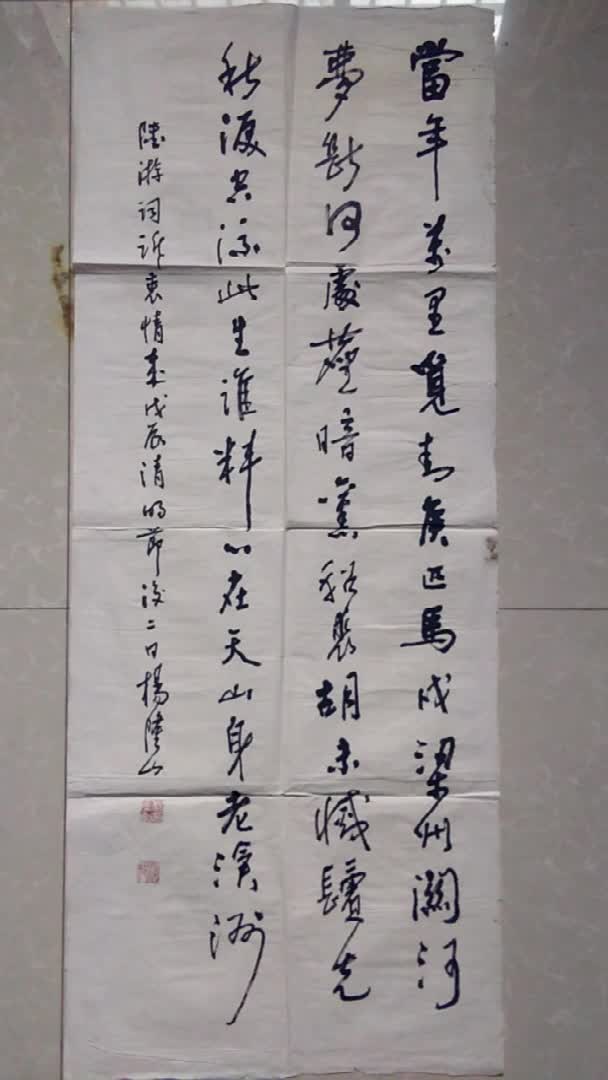 當年萬里覓封侯匹馬戍梁州關河
夢斷何處塵暗舊貂裘胡未滅鬢先
秋淚空流此生誰料心在天山身老滄洲
陸游词訴衷情歲戊辰清明節後二日楊陸山